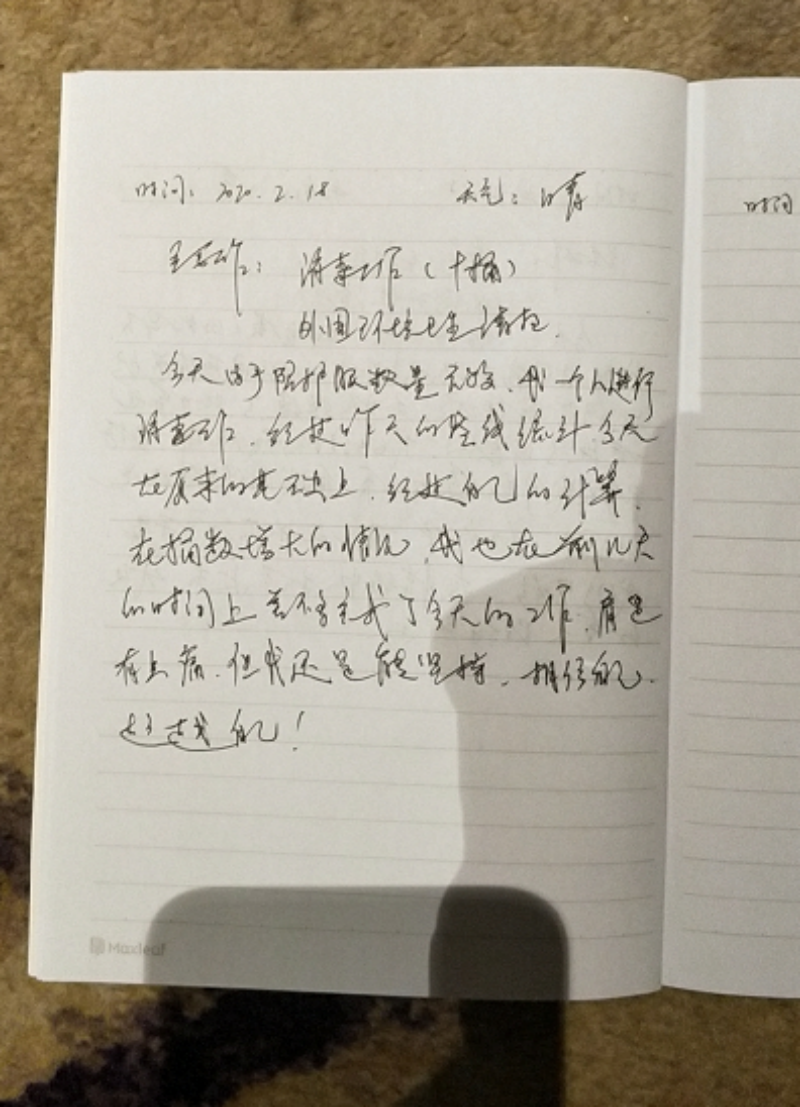 时间：2020.2.18 天气：晴 时间
主要工作：消毒工作（十桶）
外围环境卫生清扫.
今天由于防护服数量不够，我一个人进行
消毒工作，经过昨天的路线统计，今天
在原来的基础上，经过自己的计算，
在桶数增大的情况，我也在前几天
的时间上差不多完成了今天的工作，肩也
有点痛，但我还是能坚持，相信自己.
超越自己！
Maxleaf